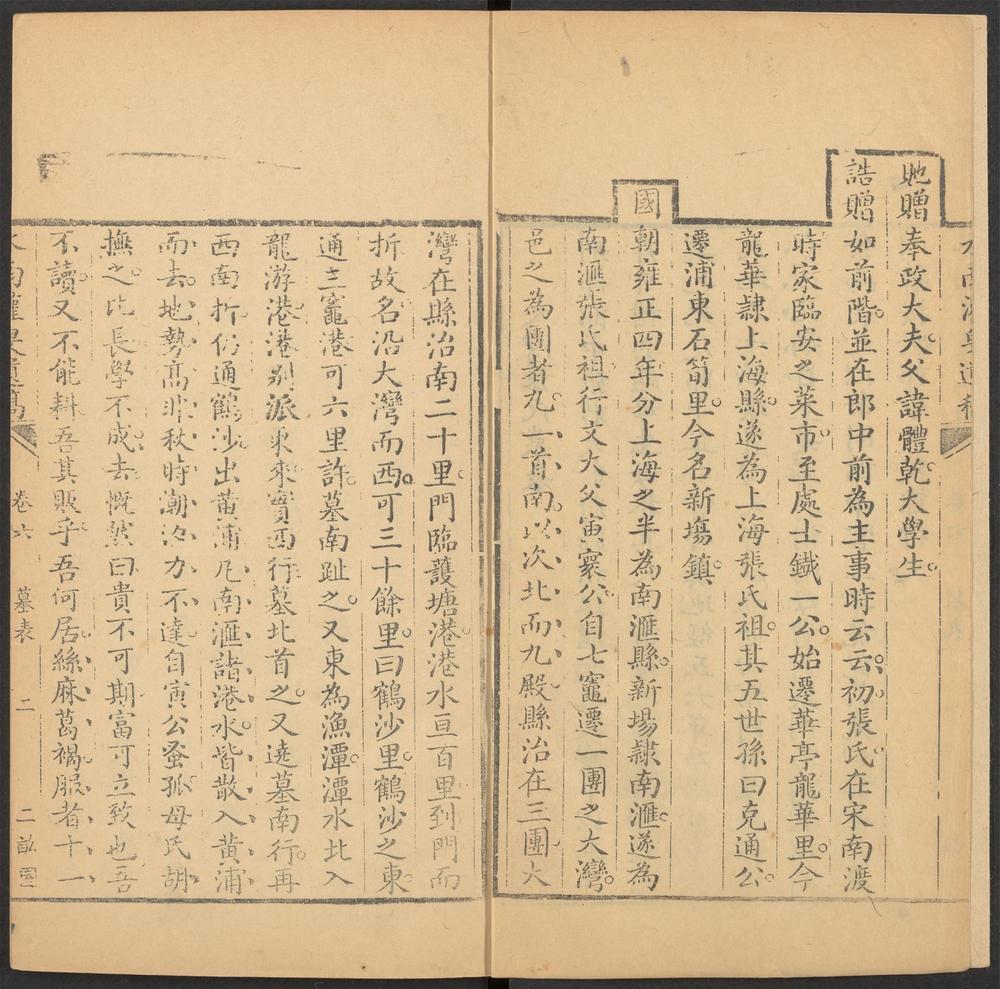 貤贈奉政大夫父諱體乾大學生
誥贈如前階並在郎中前為主事時云云初張氏在宋南渡
時家臨安之菜市至處士鐵一公始遷華亭龍華里今
龍華隸上海縣遂為上海張氏祖其五世孫曰克通公
遷浦東石筍里今名新塲鎮
國
朝雍正四年分上海之半為南滙縣新場隸南滙遂為
南滙張氏祖行文大父寅寰公自七竈遷一團之大灣
邑之為團者九一首南以次北而九殿縣治在三團大
灣在縣治南二十里門臨護塘港港水亘百里到門而
折故名沿大灣而西可三十餘里曰鶴沙里鶴沙之東
通三竈港可六里許墓南趾之又東為漁潭潭水北入
龍游港港别派東來賓西行墓北首之又遶墓南行再
西南折仍通鶴沙出黄浦凡南滙諸港水皆散入黄浦
而去地勢高非秋時潮汐力不達自寅公蚤孤母氏胡
撫之比長學不成去慨然曰貴不可期富可立致也吾
不讀又不能耕吾其販乎吾何居絲麻葛褐服者十一
卷六 墓表 二 二 㽗園